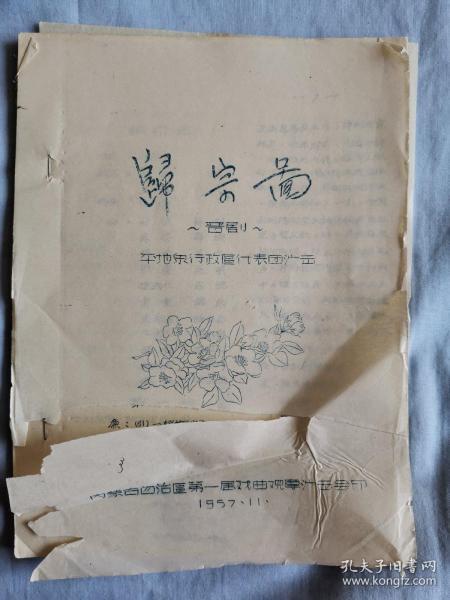 歸宗圖
~晋剧~
平地泉行政區代表团汇击
3
内蒙古自治區第一届戏曲观摩汇击
1957.11.
孔夫子旧书网
www.kongfz.com